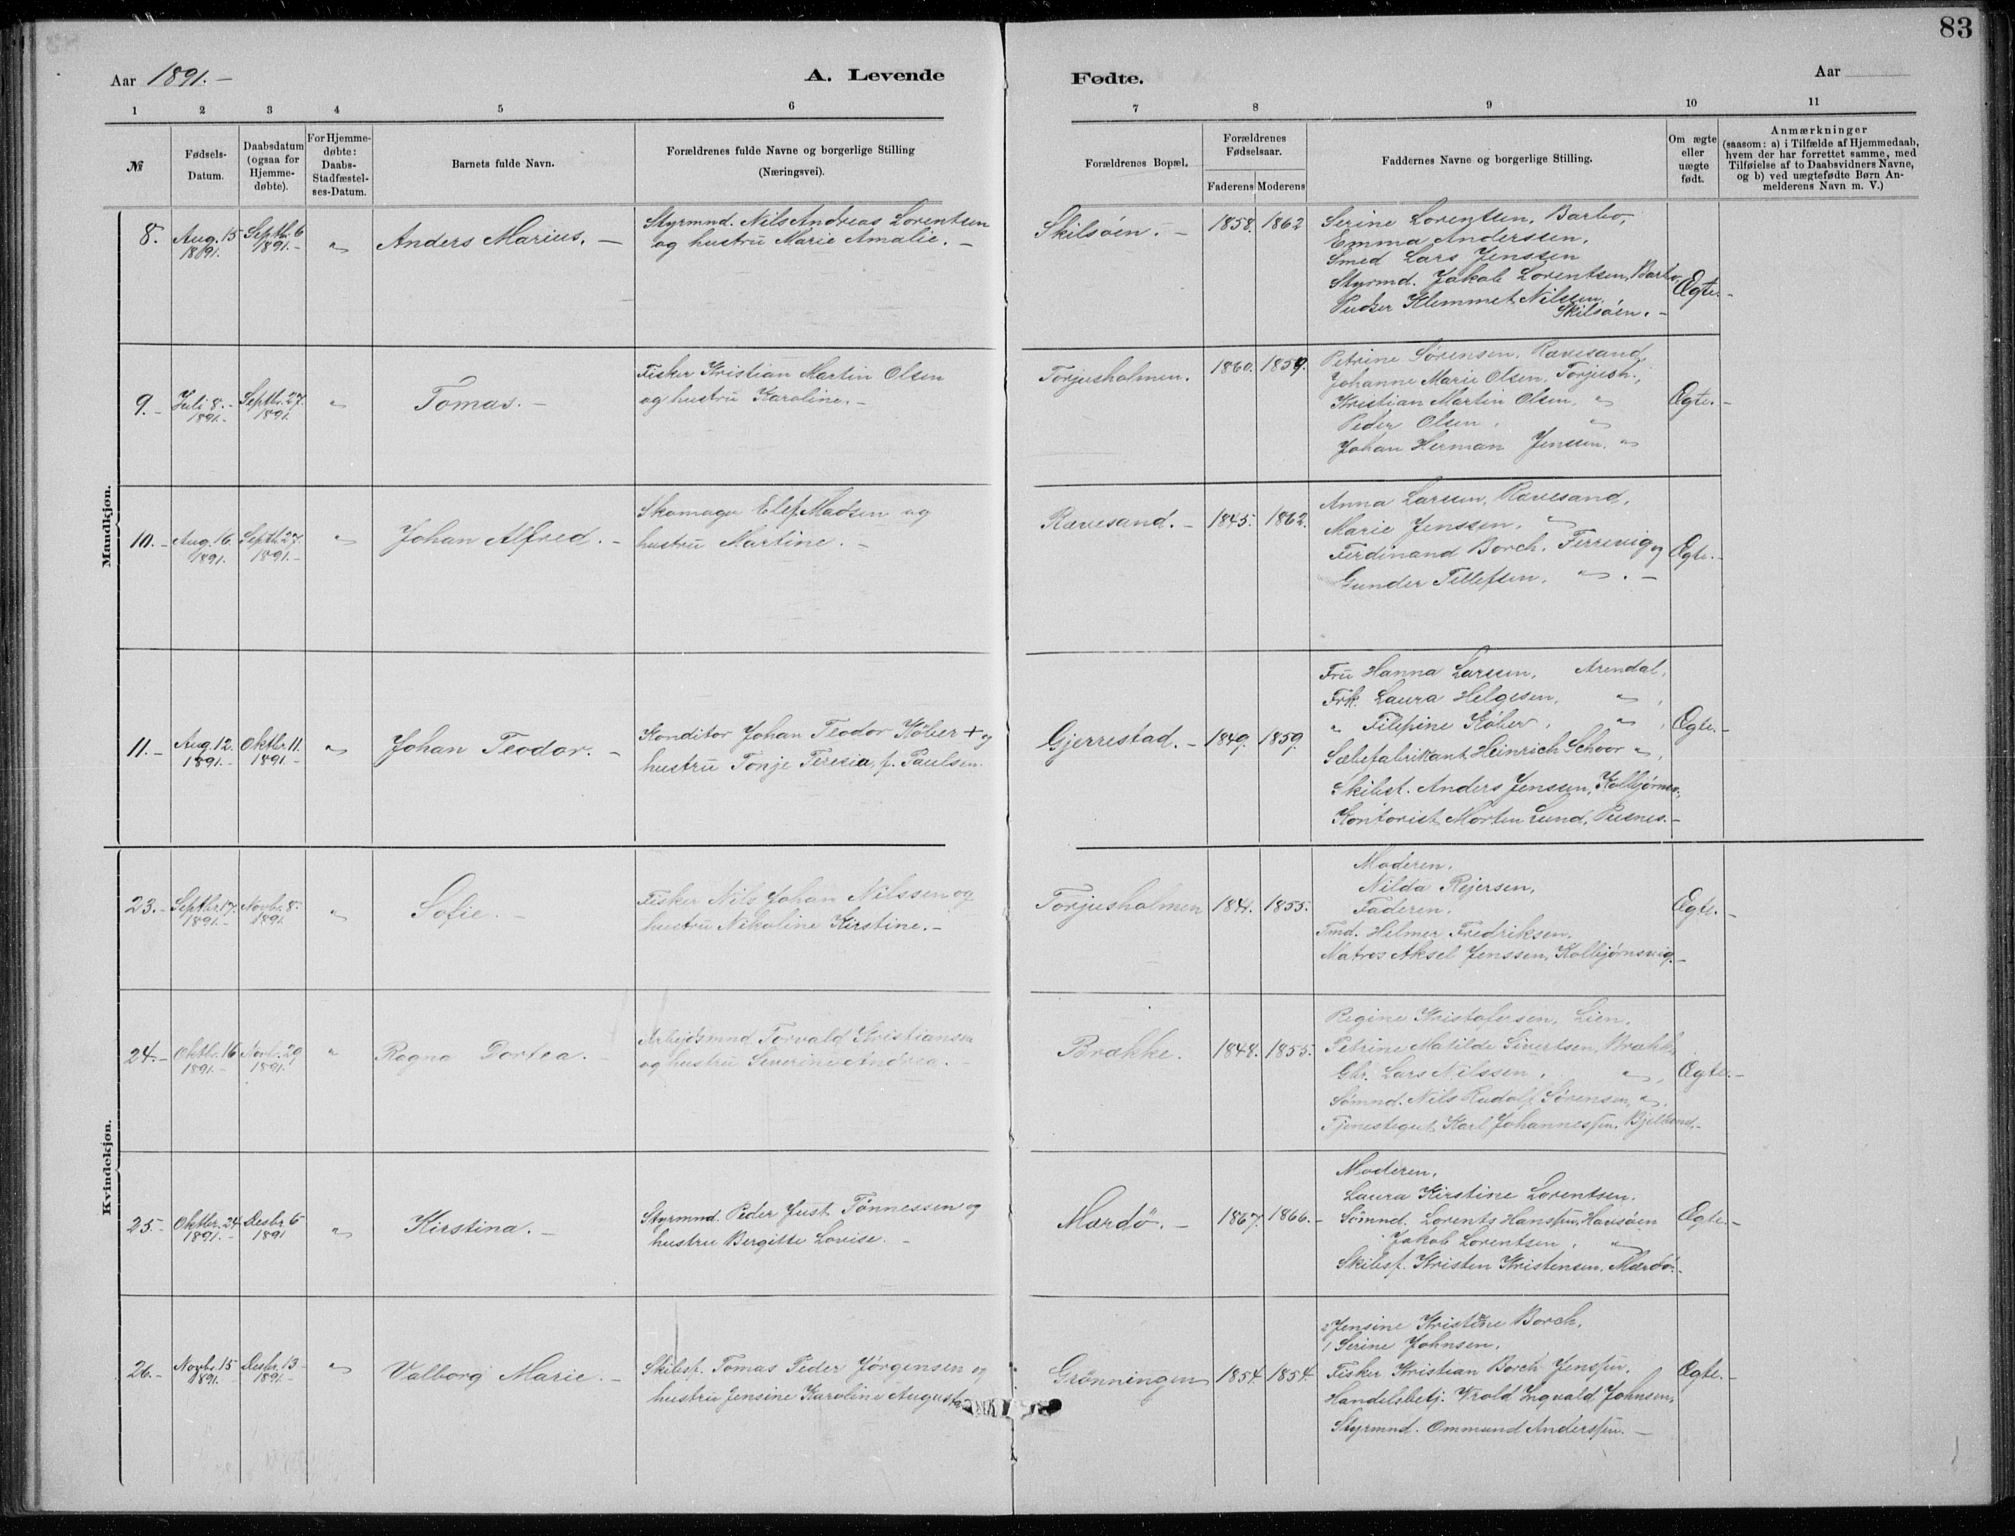 83
Aar 1891. —
A. Levende Fødte.
Aar
1 2 3 4 5 6 7 8 9 10 11
№
Fødsels-Datum.
Daabsdatum (ogsaa for Hjemmedøbte).
For Hjemmedøbte: Daabs-Stadfæstelses-Datum.
Barnets fulde Navn.
Forældrenes fulde Navne og borgerlige Stilling (Næringsvei).
Forældrenes Bopæl.
Forældrenes Fødselsaar.
Faderens Moderens
Faddernes Navne og borgerlige Stilling.
Om ægte eller uægte født.
Anmærkninger
(saasom: a) i Tilfælde af Hjemmedaab,
hvem der har forrettet samme, med
Tilføielse af to Daabsvidners Navne,
og b) ved uægtefødte Børn An-
melderens Navn m. V.)
Mandkjøn.
8. Aug. 15 1891. Septb. 6 1891. — " Anders Marius. —
Styrmnd. Nils Andreas Lorentsen
og hustru Marie Amalie. —
Skilsøen. — 1858. 1862
Serine Lorentsen, Barbo,
Emma Anderssen,
Smed Lars Jenssen
Styrmd. Jakob Lorentsen, Barbo,
Klemmet Nilssen,
Skilsøen. —
Ægte. —
9. — Juli 8. — 1891. — Septbr. 27. 1891. " Tomas. —
Fisker Kristian Martin Olsen
og hustru Karoline. —
Torjusholmen. 1860. 1859.
Petrine Sørensen, Rævesand,
Johanne Marie Olsen, Torjush.,
Kristian Martin Olsen, "
Peder Olsen, "
Johan Herman Jenssen, "
Ægte. —
10. — Aug. 16 1891. Septb. 27. 1891. — " Johan Alfred. —
Skomager Elef Madsen og
hustru Martine. —
Rævesand. — 1845. 1862.
Anna Larssen, Rævesand,
Marie Jenssen, "
Ferdinand Borch, Ferrevig og
Gunder Tellefsen, " . —
Ægte. —
11. — Aug. 12. 1891. — Oktbr. 11. 1891. — " Johan Teodor. —
Konditor Johan Teodor Køber + og
hustru Tonje Teresia, f. Paulsen.
Gjerrestad. — 1849. 1859.
Fru Hanna Larssen, Arendal,
Frk. Laura Helgesen, " ,
" Filepine Køber, " ,
Sæbefabrikant Heinrich Schoor " ,
Skibst. Anders Jenssen, Kolbjørnsv.,
Kontorist Morten Lund, Pusnes. —
Ægte. —
Kvindekjøn.
23. — Septbr. 17. 1891. — Novbr. 8. 1891. — " Sofie. —
Fisker Nils Johan Nilssen og
hustru Nikoline Kirstine. —
Torjusholmen 1841. 1855.
Moderen.
Nilda Rejersen,
Faderen.
Tmd. Helmer Fredriksen,
Matros Aksel Jenssen, Kolbjørnsvig. —
Ægte. —
24. — Oktbr. 16 1891. — Novbr. 29 1891. — " Ragna Dortea. —
Arbejdsmnd Torvald Kristiansen
og hustru Severine Andrea.
Brække. 1848. 1855.
Regine Kristofersen, Lien,
Petrine Matilde Sivertsen, Brække,
Gbr. Lars Nilssen, " ,
Sømnd. Nils Rudolf Sørensen, " ,
Tjenestegut Karl Johannessen,
Ægte. —
25. — Oktbr. 24 1891. — Desbr. 6 1891 " Kirstina. —
Styrmnd. Peder Just Tønnessen og
hustru Bergitte Lovise. —
Mærdø. — 1867. 1866. —
Moderen.
Laura Kirstine Lorentsen.
Sømnd. Lorents Hanssen, Havsøen
" Jakob Lorentsen, "
Skibsf. Kristen Kristensen, Mærdø. —
Ægte. —
26. — Novbr. 15 1891. — Desbr. 13 — 1891. — " Valborg Marie. —
Skibsf. Tomas Peder Jørgensen og
hustru Jensine Karoline Augusta
Grønningen 1854. 1854.
2 Jensine Kristine Borch,
1 Serine Johnsen,
Fisker Kristian Borch Jenssen,
Handelsbetj. Wrold Ingvald Johnsen,
Styrmnd. Ommund Anderssen. —
Ægte. —